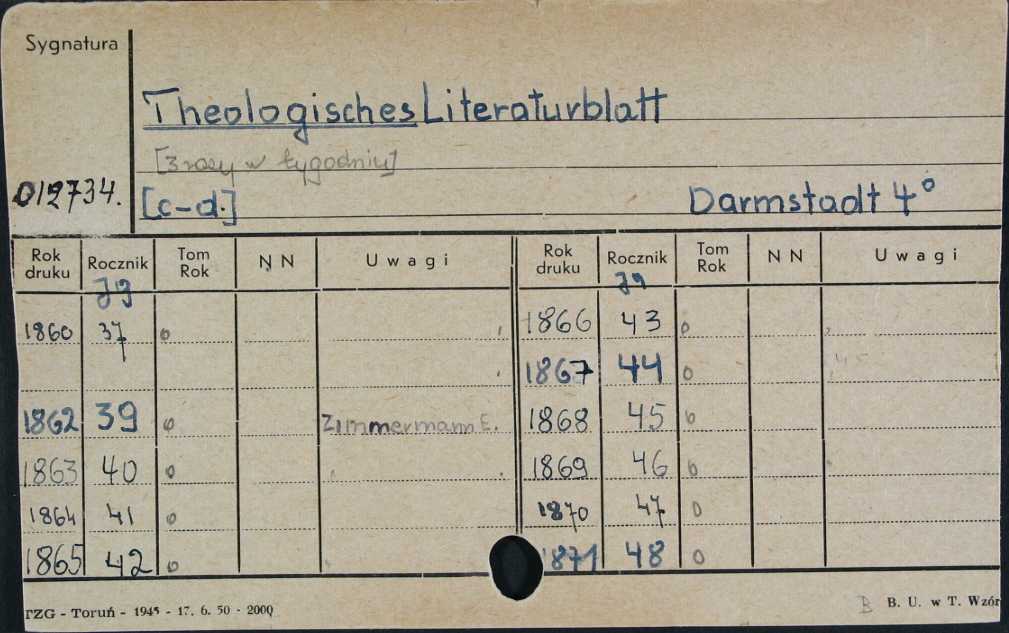 Sygnatura
Theologisches Literaturblatt
[3 razy w tygodniu]
012734.
[c-d.] Darmstadt 4°
Rok druku Rocznik Tom Rok N N U w a g i Rok druku Rocznik Tom Rok N N U w a g i
Jg Jg
1860 37 0 1866 43 0
1867 44 0 45
1862 39 0 Zimmermann E. 1868 45 0
1863 40 0 1869 46 0
1864 41 0 1870 47 0
1865 42 0 1871 48 0
TZG - Toruń - 1945 - 17. 6. 50 - 2000 B B. U. w T. Wzór